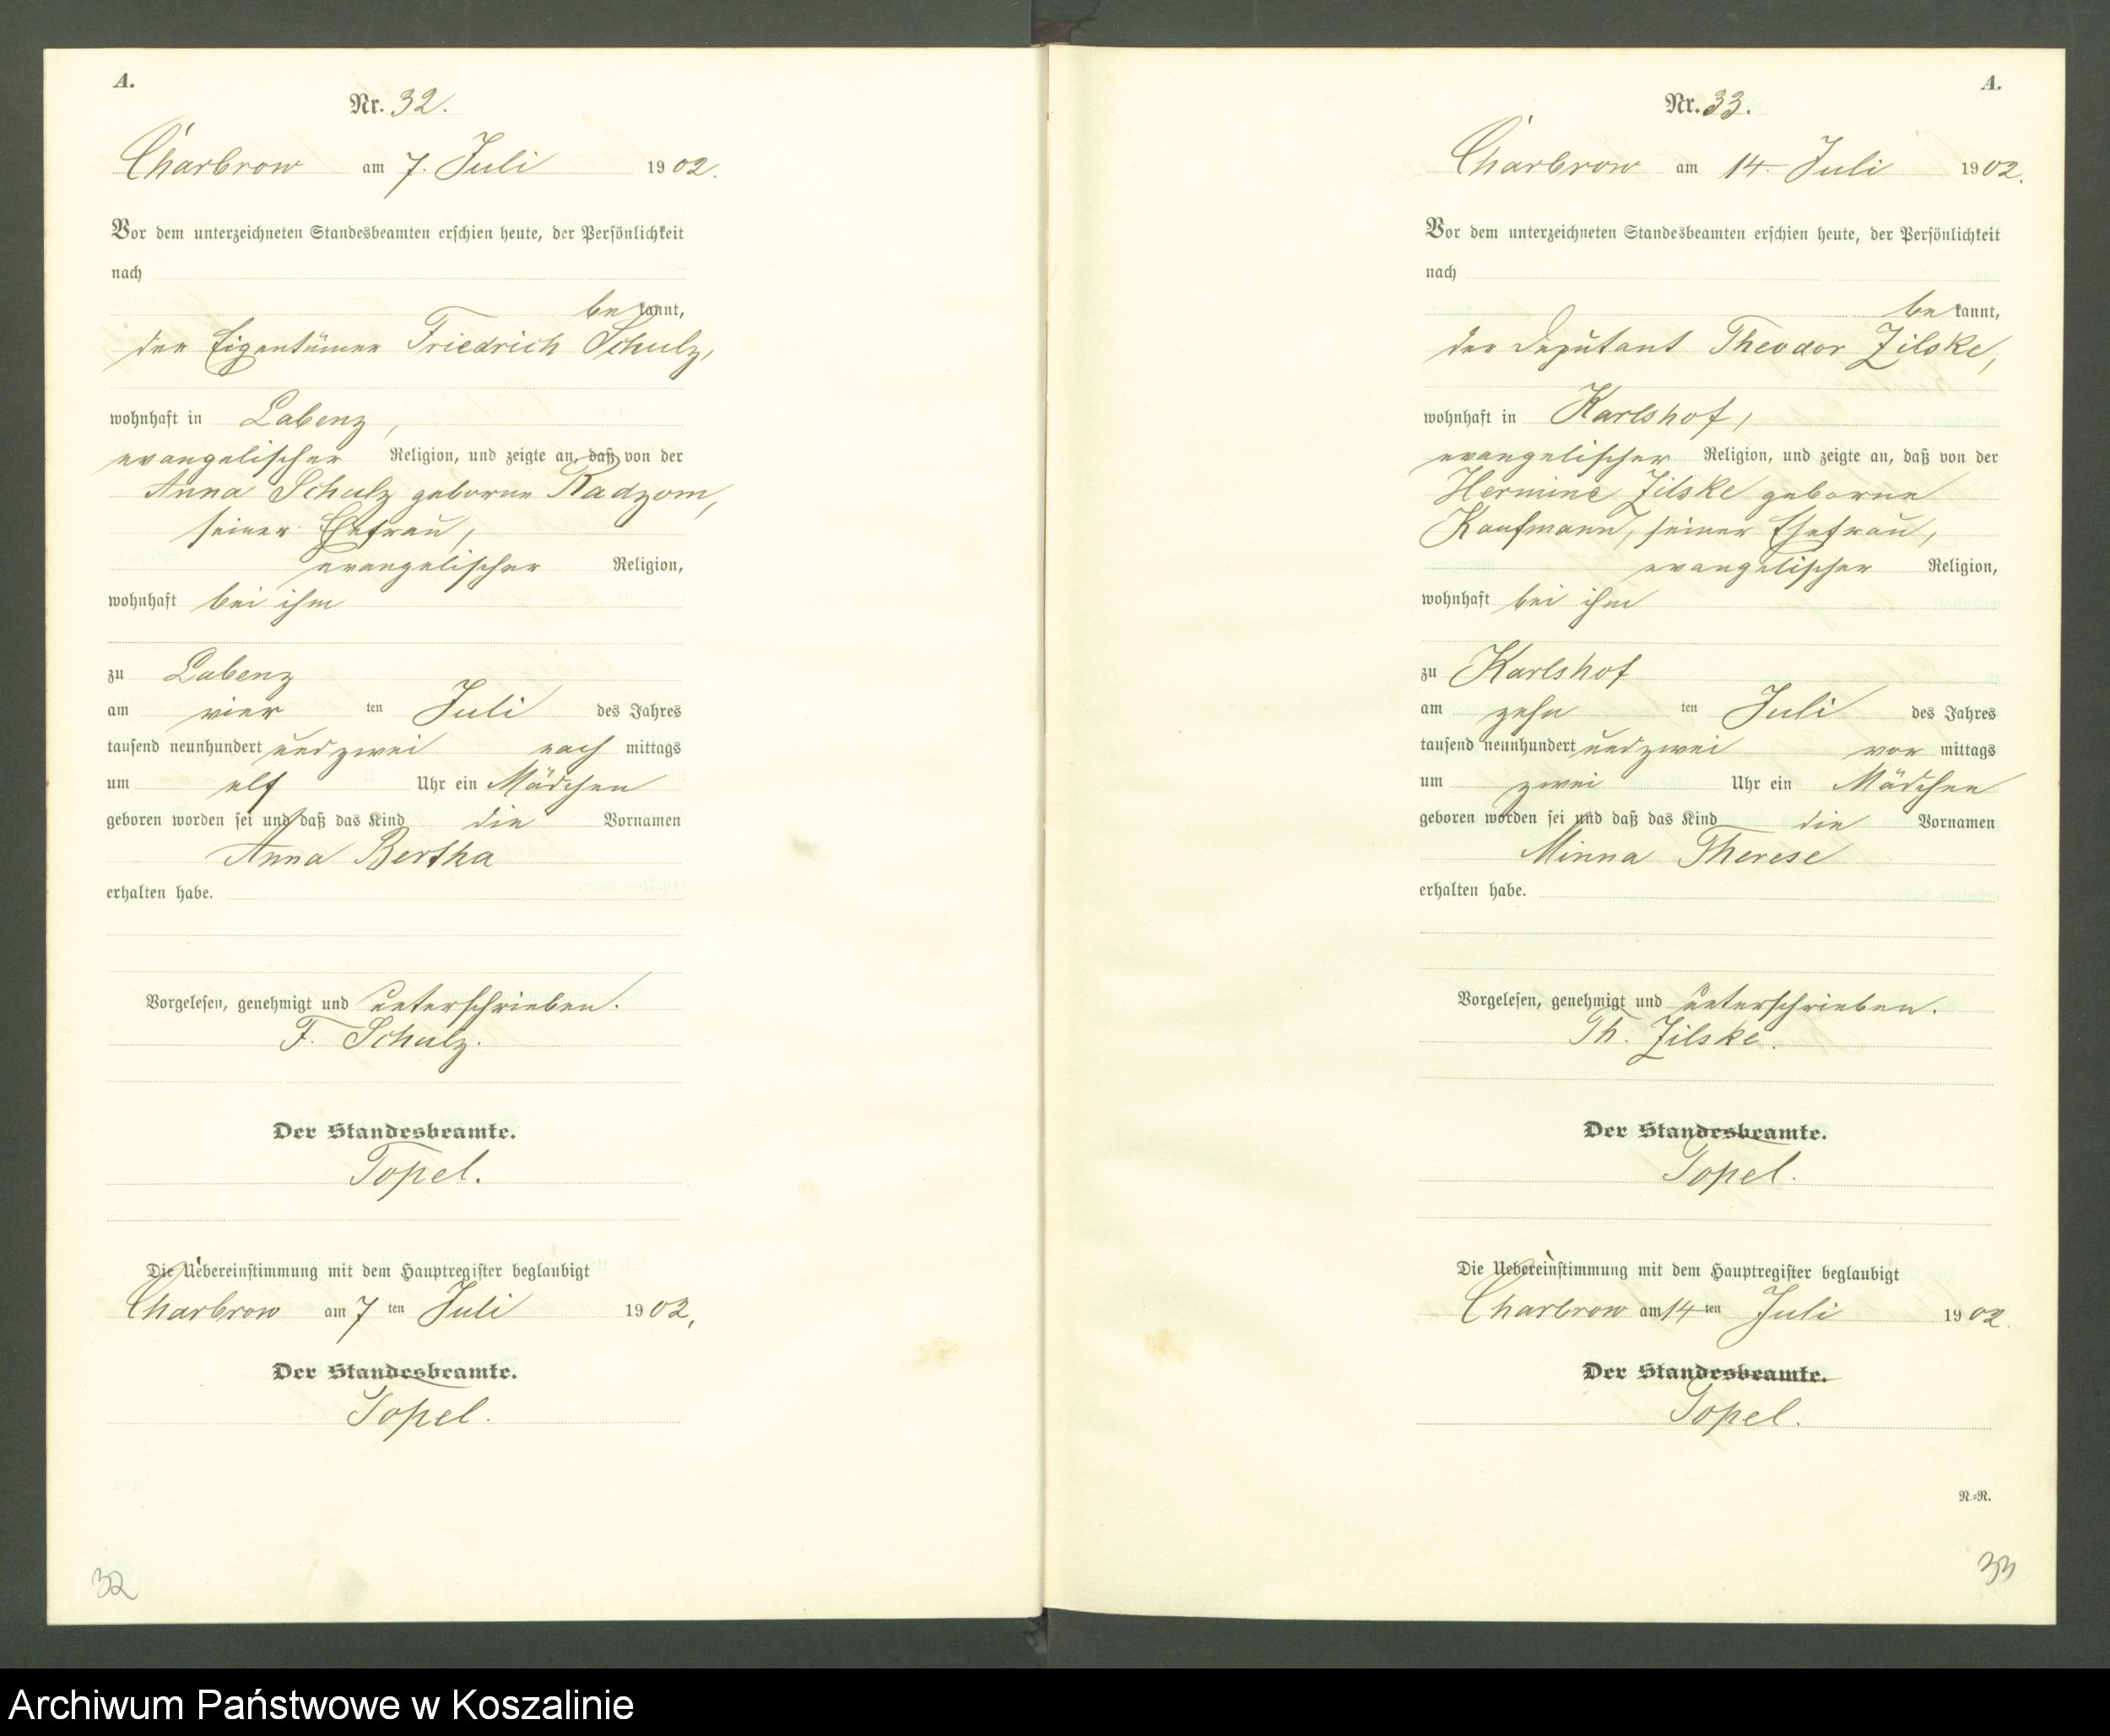 A.
Nr. 32.
Charbrow am 7. Juli 1902.
Vor dem unterzeichneten Standesbeamten erschien heute, der Persönlichkeit
nach
bekannt,
der Eigentümer Friedrich Schulz,
wohnhaft in Labenz,
evangelischer Religion, und zeigte an, daß von der
Anna Schulz geborne Radzom,
seiner Ehefrau,
evangelischer Religion,
wohnhaft bei ihm
zu Labenz
am vier ten Juli des Jahres
tausend neunhundert und zwei nach mittags
um elf Uhr ein Mädchen
geboren worden sei und daß das Kind die Vornamen
Anna Bertha
erhalten habe.
Vorgelesen, genehmigt und unterschrieben.
F. Schulz.
Der Standesbeamte.
Topel.
Die Uebereinstimmung mit dem Hauptregister beglaubigt
Charbrow am 7 ten Juli 1902.
Der Standesbeamte.
Topel.
32
A.
Nr. 33.
Charbrow am 14. Juli 1902.
Vor dem unterzeichneten Standesbeamten erschien heute, der Persönlichkeit
nach
bekannt,
der Deputant Theodor Zilske,
wohnhaft in Karlshof,
evangelischer Religion, und zeigte an, daß von der
Hermine Zilske geborne
Kaufmann, seiner Ehefrau,
evangelischer Religion,
wohnhaft bei ihm
zu Karlshof
am zehn ten Juli des Jahres
tausend neunhundert und zwei vor mittags
um zwei Uhr ein Mädchen
geboren worden sei und daß das Kind die Vornamen
Minna Therese
erhalten habe.
Vorgelesen, genehmigt und unterschrieben.
Th. Zilske.
Der Standesbeamte.
Topel.
Die Uebereinstimmung mit dem Hauptregister beglaubigt
Charbrow am 14 ten Juli 1902.
Der Standesbeamte.
Topel.
N.=R.
33
Archiwum Państwowe w Koszalinie